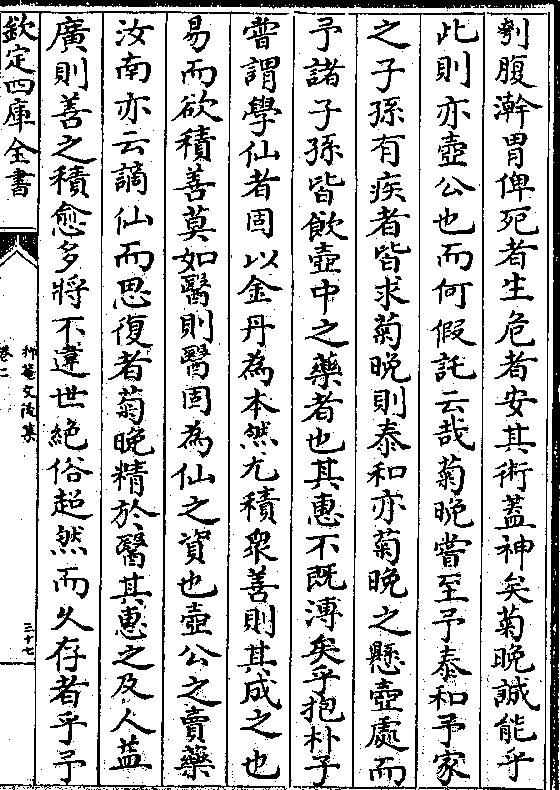 刳腹澣胃俾死者生危者安其術蓋神矣菊晚誠能乎
此則亦壺公也而何假託云哉菊晚嘗至予泰和予家
之子孫有疾者皆求菊晚則泰和亦菊晚之懸壺處而
予諸子孫皆飲壺中之藥者也其惠不既溥矣乎抱朴子
嘗謂學仙者固以金丹為本然尤積衆善則其成之也
易而欲積善莫如醫則醫固為仙之資也壺公之賣藥
汝南亦云謫仙而思復者菊晚精於醫其惠之及人益
廣則善之積愈多將不違世絶俗超然而久存者乎予
欽定四庫全書
卷二
三十七